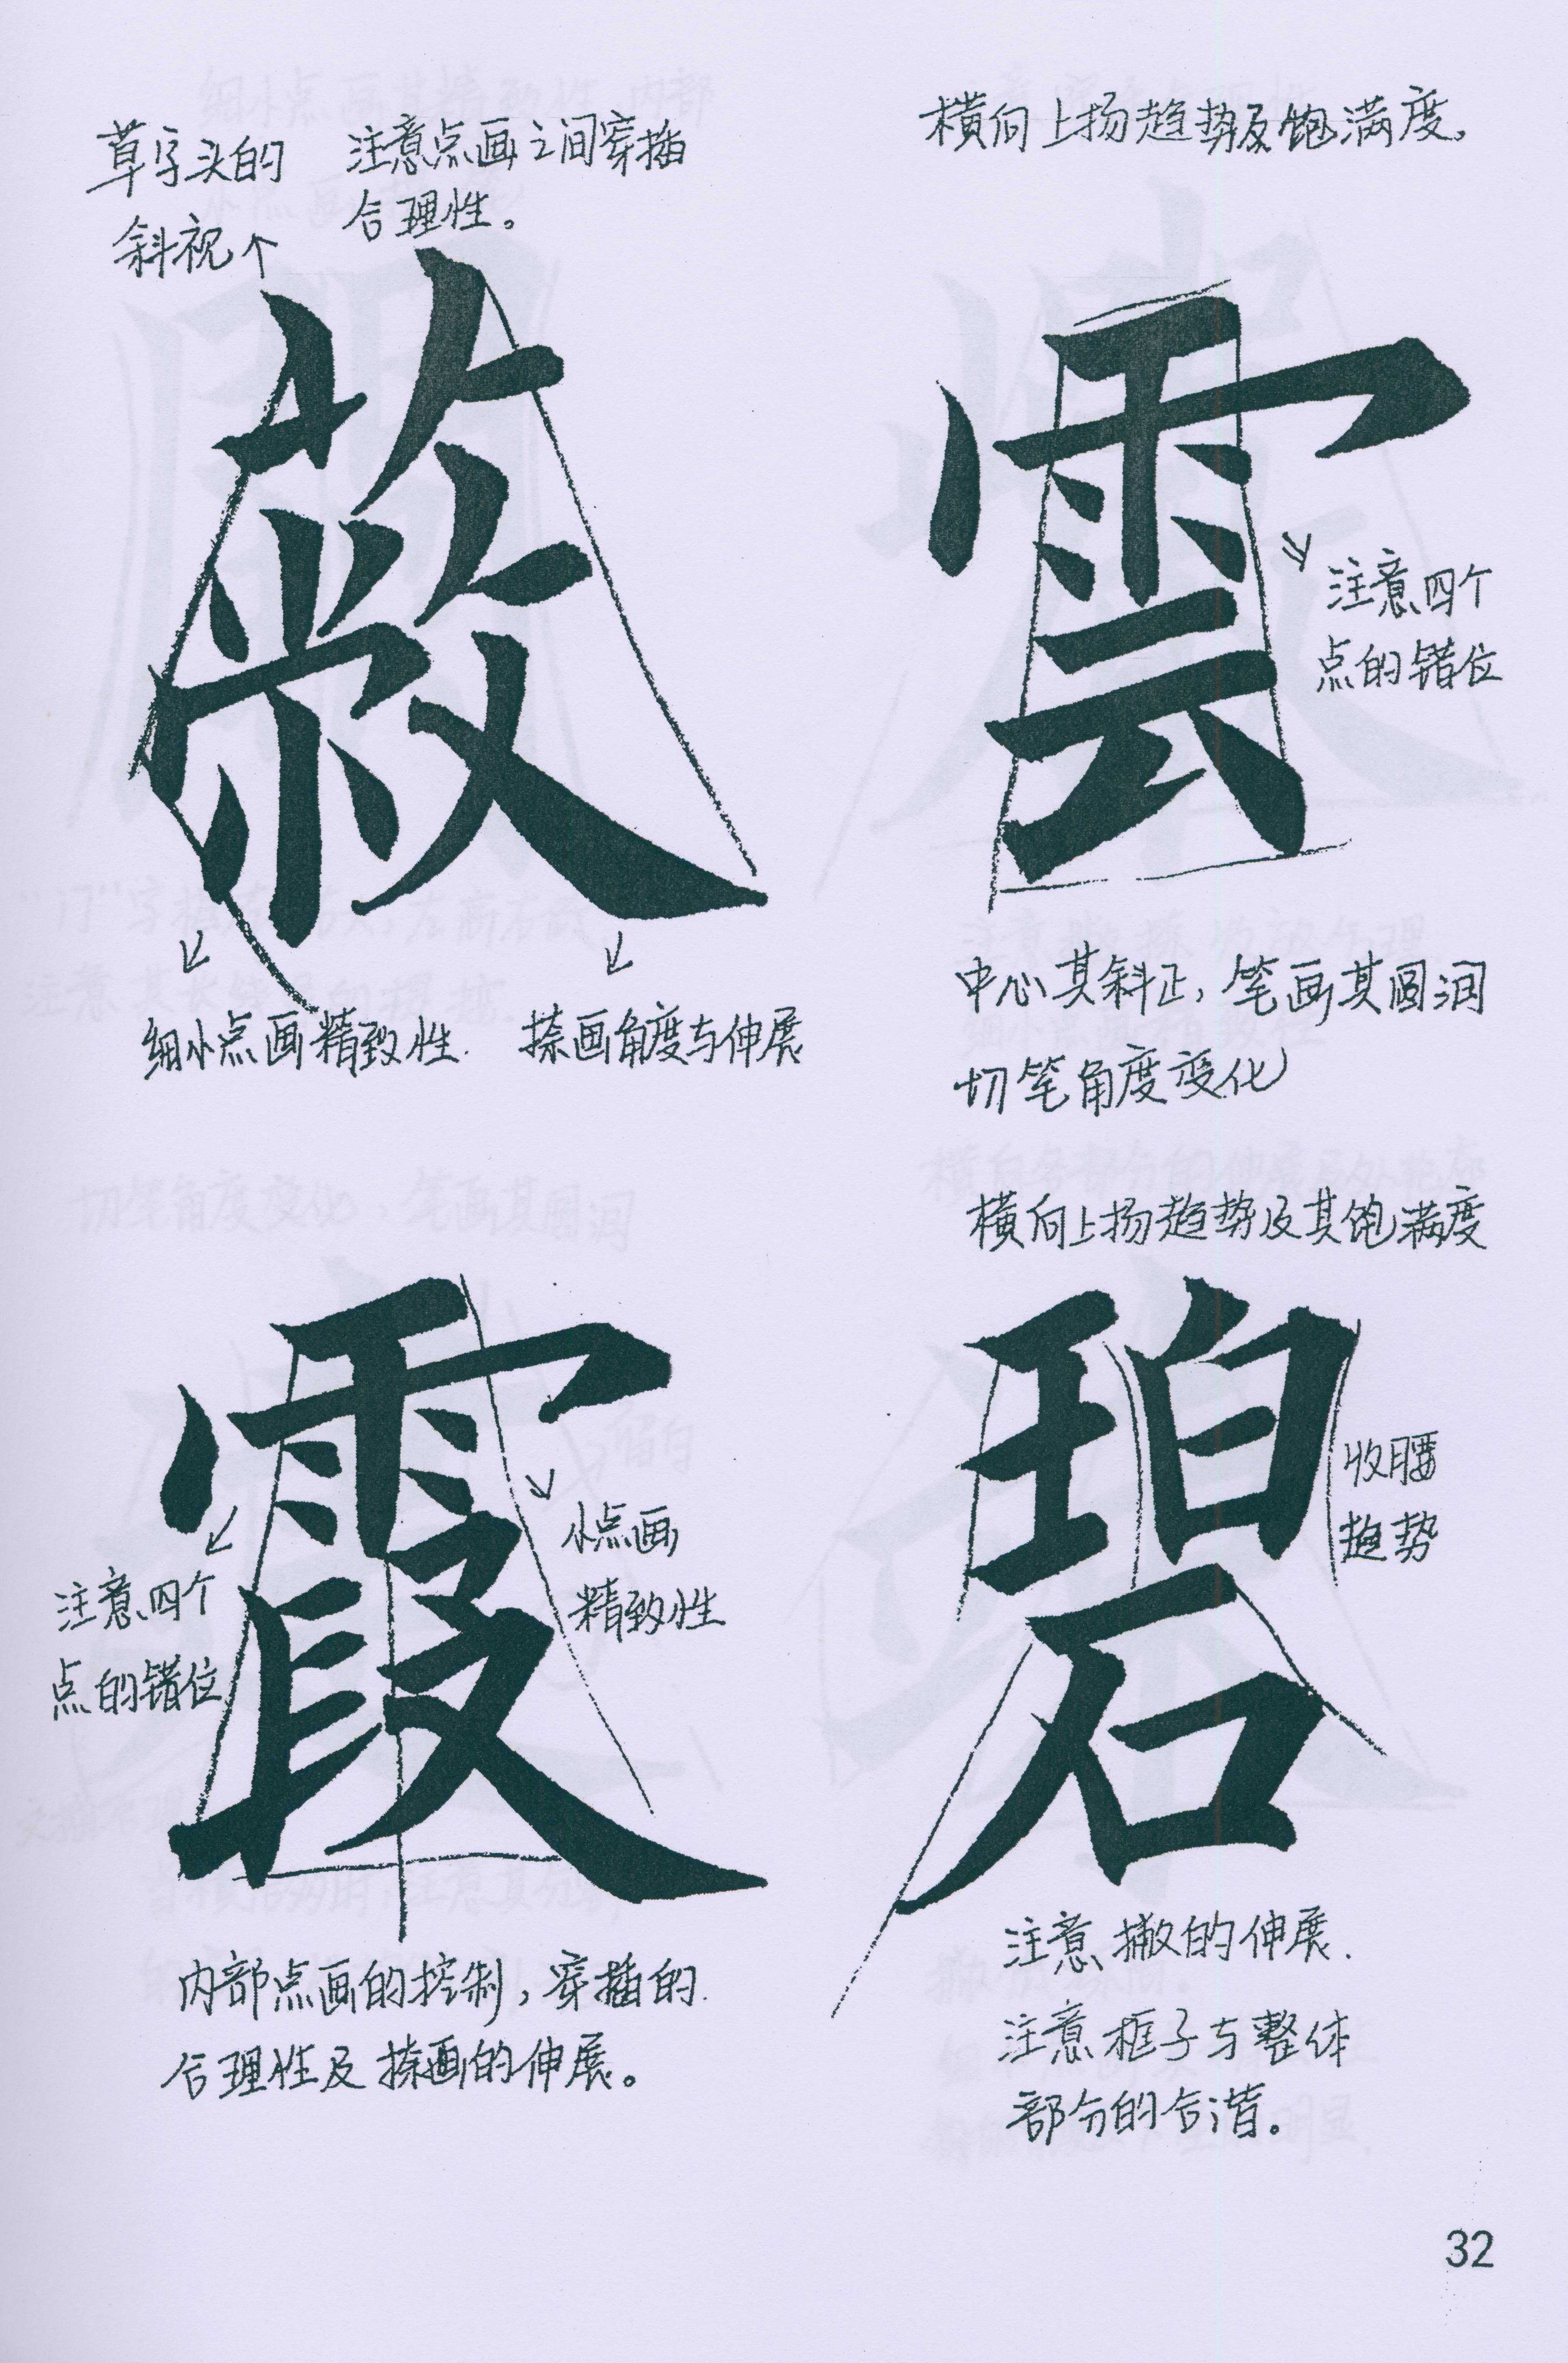 草字头的
斜视
注意点画之间穿插
合理性。
蔽
细小点画精致性.
捺画角度与伸展
横向上扬趋势及饱满度。
雲
注意四个
点的错位
中心其斜正，笔画其圆润
切笔角度变化
霞
注意四个
点的错位
小点画
精致性
内部点画的控制，穿插的.
合理性及捺画的伸展。
横向上扬趋势及其饱满度
碧
收腰
趋势
注意撇的伸展.
注意框子与整体
部分的合谐。
32